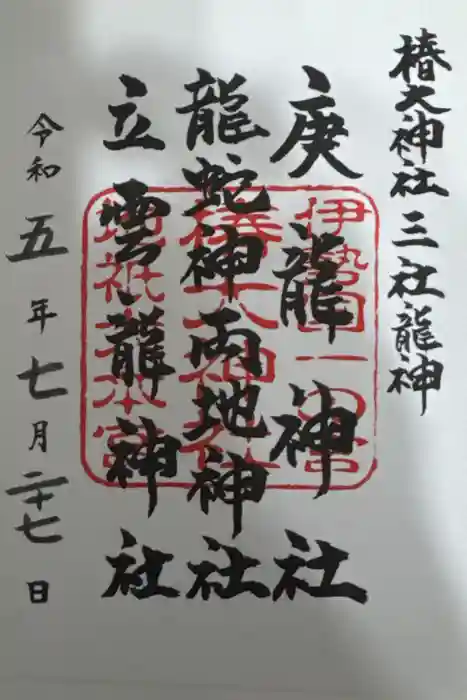 椿大神社三社龍神
庚龍神社
龍蛇神両地神社
立雲龍神社
令和五年七月二十七日
伊勢国一の宮
椿大神社
地祇大本宮